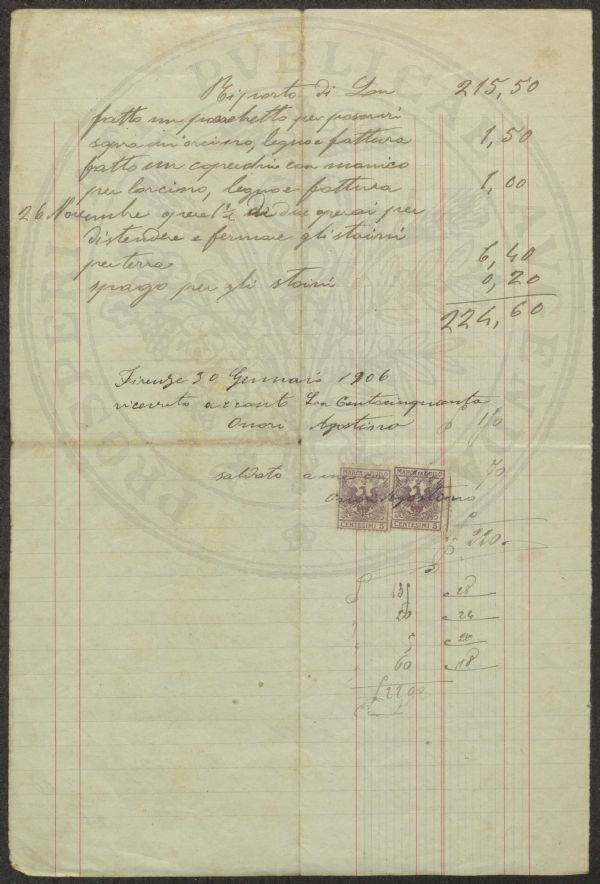 Riporto di Lon 215,50
fatto un panchetto per posarvi
sopra un orcino, legno e fattura 1,50
fatto un coperchio con manico
per lorcino, legno e fattura 1,00
26 Novembre opere 1 1/2 di due operai per
distendere e fermare gli stoini
per terra 6,40
spago per gli stoini 0,20
224,60
Firenze 30 Gennaio 1906
ricevuto acconto Lon Centocinquanta
Onori Agostino 150
saldato 70
Onori Agostino
MARCA DA BOLLO MARCA DA BOLLO
CENTESIMI 5 CENTESIMI 5
220
135 28
20 24
5 20
60 18
220